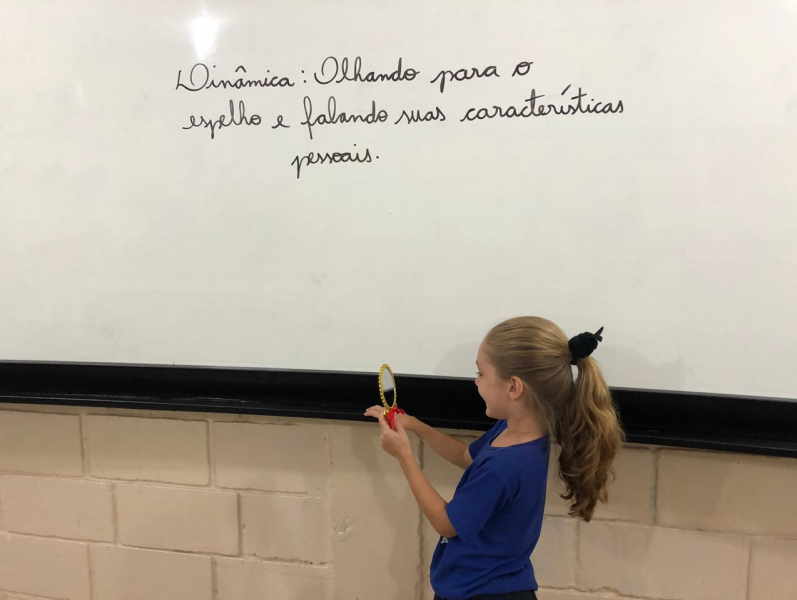 Dinâmica: Olhando para o
espelho e falando suas características
pessoais.